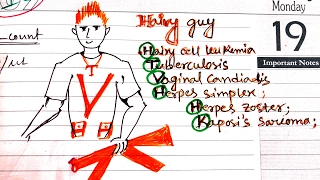 Hairy guy
Monday
19
Important Notes
count
Hairy cell leukemia
Tuberculosis
Vaginal Candiadis
Herpes simplex;
Herpes zoster;
Kaposi's sarcoma;
T